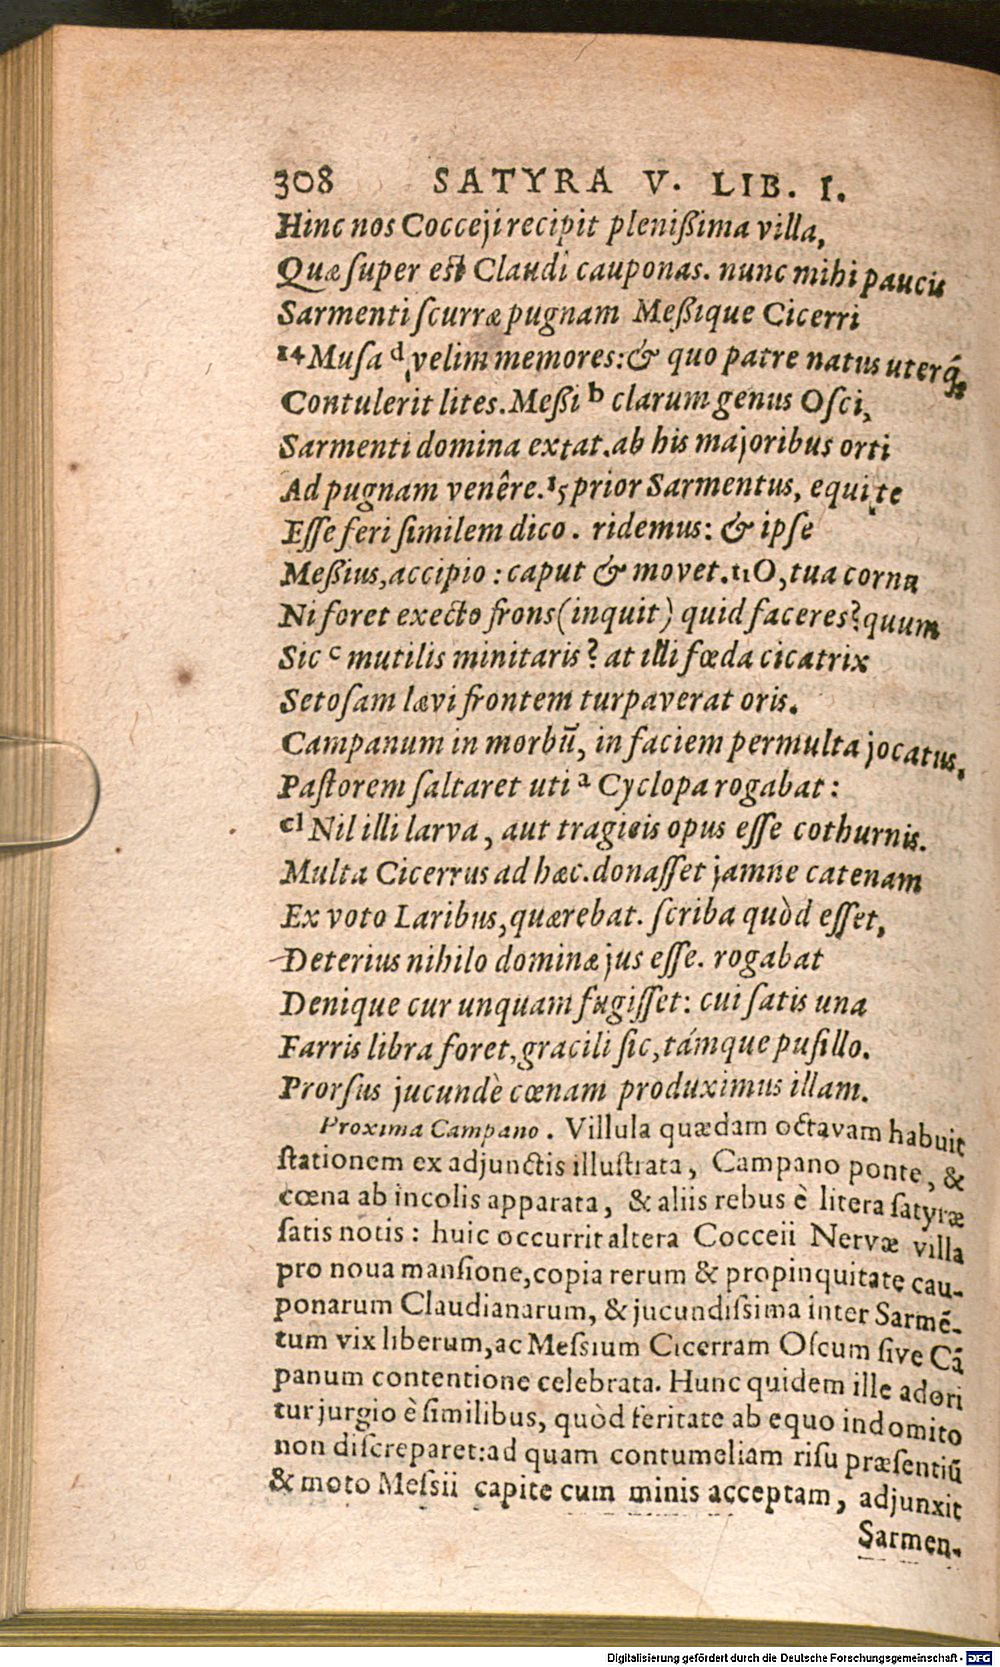 308 SATYRA V. LIB. I.
Hinc nos Cocceji recipit plenißima villa,
Quæ ſuper est Claudi cauponas. nunc mihi paucis
Sarmenti ſcurræ pugnam Meßique Cicerri
14 Muſa d velim memores: & quo patre natus uterq́;
Contulerit lites. Meßi b clarum genus Oſci,
Sarmenti domina extat. ab his majoribus orti
Ad pugnam venêre. 15 prior Sarmentus, equi te
Eſſe feri ſimilem dico. ridemus: & ipſe
Meßius, accipio: caput & movet. 11 O, tua cornu
Ni foret execto frons (inquit) quid faceres? quum
Sic c mutilis minitaris? at illi fœda cicatrix
Setoſam lævi frontem turpaverat oris.
Campanum in morbū, in faciem permulta jocatus,
Paſtorem ſaltaret uti a Cyclopa rogabat:
cl Nil illi larva, aut tragicis opus eſſe cothurnis.
Multa Cicerrus ad hæc. donaſſet jamne catenam
Ex voto Laribus, quærebat. ſcriba quòd eſſet,
Deterius nihilo dominæ jus eſſe. rogabat
Denique cur unquam fugiſſet: cui ſatis una
Farris libra foret, gracili ſic, támque puſillo.
Prorſus jucundè cœnam produximus illam.
Proxima Campano. Villula quædam octavam habuit
ſtationem ex adjunctis illuſtrata, Campano ponte, &
cœna ab incolis apparata, & aliis rebus è litera ſatyræ
ſatis notis: huic occurrit altera Cocceii Nervæ villa
pro noua manſione, copia rerum & propinquitate cau-
ponarum Claudianarum, & jucundiſsima inter Sarmē-
tum vix liberum, ac Meſsium Cicerram Oſcum ſive Cā
panum contentione celebrata. Hunc quidem ille adori
tur jurgio è ſimilibus, quòd feritate ab equo indomito
non diſcreparet: ad quam contumeliam riſu præſentiū
& moto Meſsii capite cum minis acceptam, adjunxit
Sarmen-
Digitalisierung gefördert durch die Deutsche Forschungsgemeinschaft - DFG